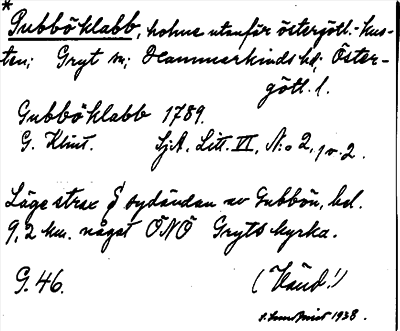 *
Gubböklabb, holme utanför östergötl.-kus-
ten; Gryt sn; Hammarkinds hd; Öster-
götl. l.
Gubböklabb 1789.
G. Klint. SjA, Litt. VI, N:o 2, 1 o. 2.
Läge strax S sydändan av Gubbön, bel.
9,2 km. något ÖNÖ Gryts kyrka.
G. 46. (Vänd!)
1938.